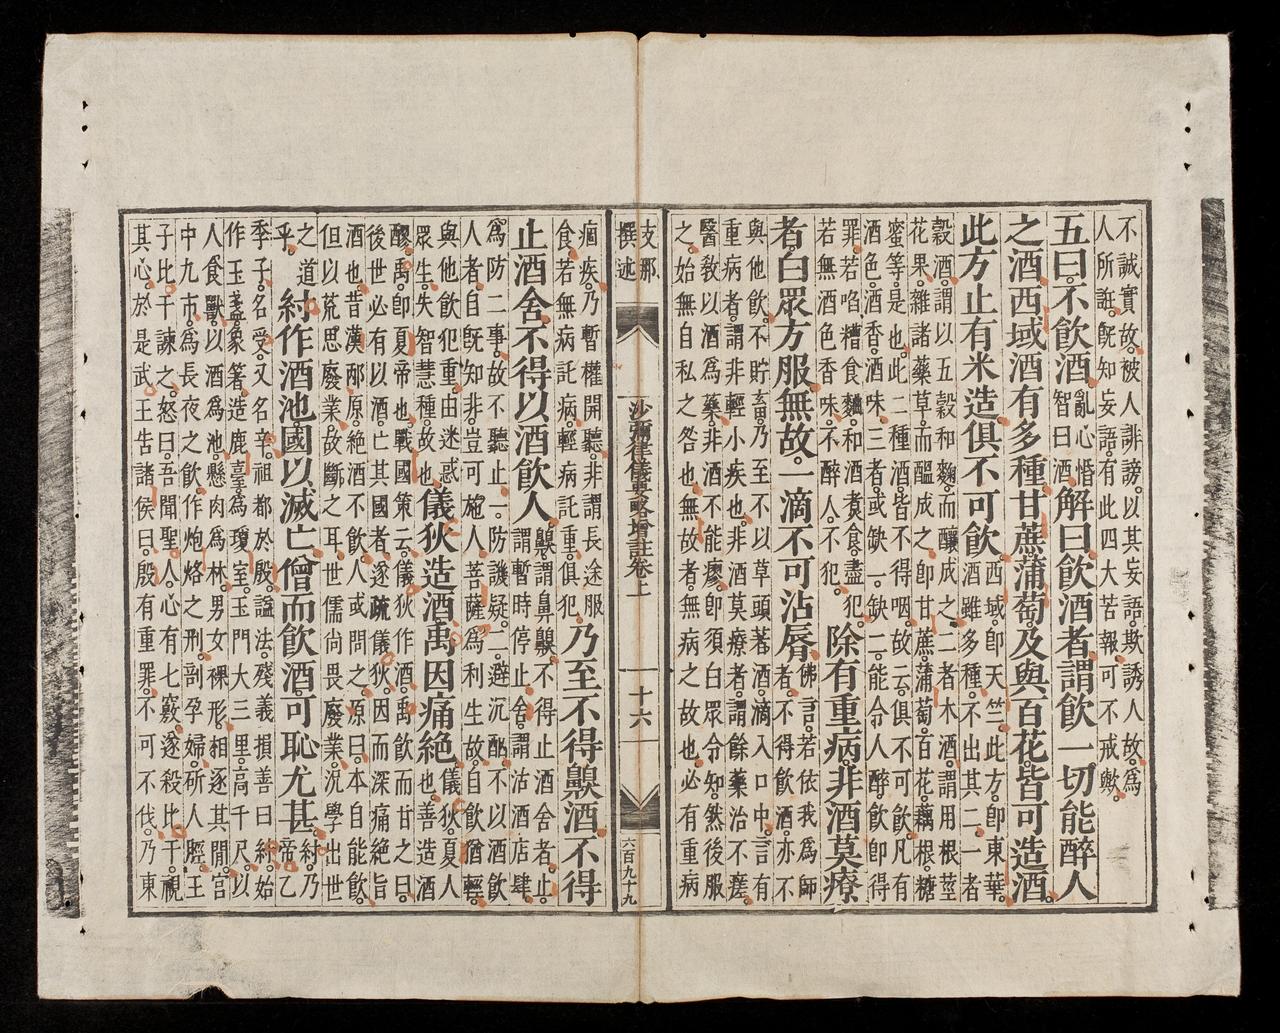 不誠實故。被人誹謗。以其妄語。欺誘人故。為
人所誑。旣知妄語。有此四大苦報。可不戒歟。
五曰。不飲酒。
亂心惛
智曰酒。
解曰。飲酒者。謂飲一切能醉人
之酒。西域酒有多種。甘蔗蒲萄。及與百花。皆可造酒。
此方止有米造。俱不可飲。
西域。卽天竺。此方。卽東華。
酒雖多種。不出其二。一者
穀酒。謂以五穀和麴。而釀成之。二者木酒。謂用根莖
花果。雜諸藥草。而醞成之。卽甘蔗。蒲萄。百花。藕根。糖
蜜等。是也。此二種酒。皆不得咽。故云。俱不可飲。凡有
酒色。酒香。酒味。三者。或缺一。缺二。能令人醉。飲卽得
罪。若啗糟食麯。和酒煮食。盡犯。
若無酒色香味。不醉人。不犯。
除有重病。非酒莫療
者。白眾方服。無故。一滴不可沾脣。
佛言。若依我為師
者。不得飲酒。亦不
與他飲。不貯畜。乃至不以草頭。著酒滴入口中。言有
重病者。謂非輕小疾也。非酒莫療者。謂餘藥治不瘥。
醫敎以酒為藥。非酒不能瘳。卽須白眾令知。然後服
之。始無自私之咎也。無故者。無病之故也。必有重病
支那
撰述
沙彌律儀要略增註卷上
十六
六百九十九
痼疾。乃暫權開聽。非謂長途服
食。若無病託病。輕病託重。俱犯。
乃至不得齅酒。不得
止酒舍。不得以酒飲人。
齅。謂鼻齅。不得止酒舍者。止。
謂暫時停止。舍。謂沽酒店肆。
為防二事。故不聽止。一防譏疑。一避沉酗。不以酒飲
人者。自旣知非。豈可施人。菩薩為利生故。自飲猶輕。
與他飲犯重。由迷惑
眾生。失智慧種。故也。
儀狄造酒。禹因痛絕。
儀狄。夏人
也。善造酒
醪。禹。卽夏帝也。戰國策云。儀狄作酒。禹飲而甘之。曰。
後世必有以酒。亡其國者。遂疏儀狄。因而深痛絕旨
酒也。昔漢邴原。絕酒不飲。人或問之。原曰。本自能飲。
但以荒思廢業。故斷之耳。世儒尚畏廢業。況學出世
之道
乎。
紂作酒池。國以滅亡。僧而飲酒。可恥尤甚。
紂。乃
帝乙
季子。名受。又名辛。祖都於殷。諡法。殘義損善曰紂。始
作玉盞。象箸。造鹿臺。為瓊室。玉門。大三里。高千尺。以
人食獸。以酒為池。懸肉為林。男女裸形。相逐其閒。宮
中九市。為長夜之飲。作炮烙之刑。剖孕婦。斫人脛。王
子比干諫之。怒曰。吾聞聖人。心有七竅。遂殺比干。視
其心。於是武王告諸侯曰。殷有重罪。不可不伐。乃東